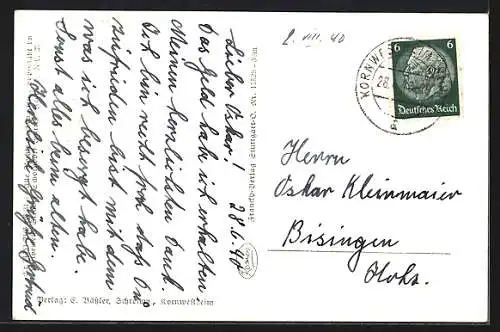 2. VII. 40
KORNWES
28.
6 6
Deutsches Reich
28.6.40
Lieber Oskar!
Das Geld habe ich erhalten
Meinen herzlichsten Dank.
Ich bin recht froh dass Du
zufrieden bist mit dem
was ich besorgt habe.
Sonst alles beim alten.
Herzliche Grüße Gertrud
Franckh-Verlag Stuttgart-O.
Herrn
Oskar Kleinmaier
Bisingen
Hohz.
Verlag: E. Bäßler, Kornwestheim